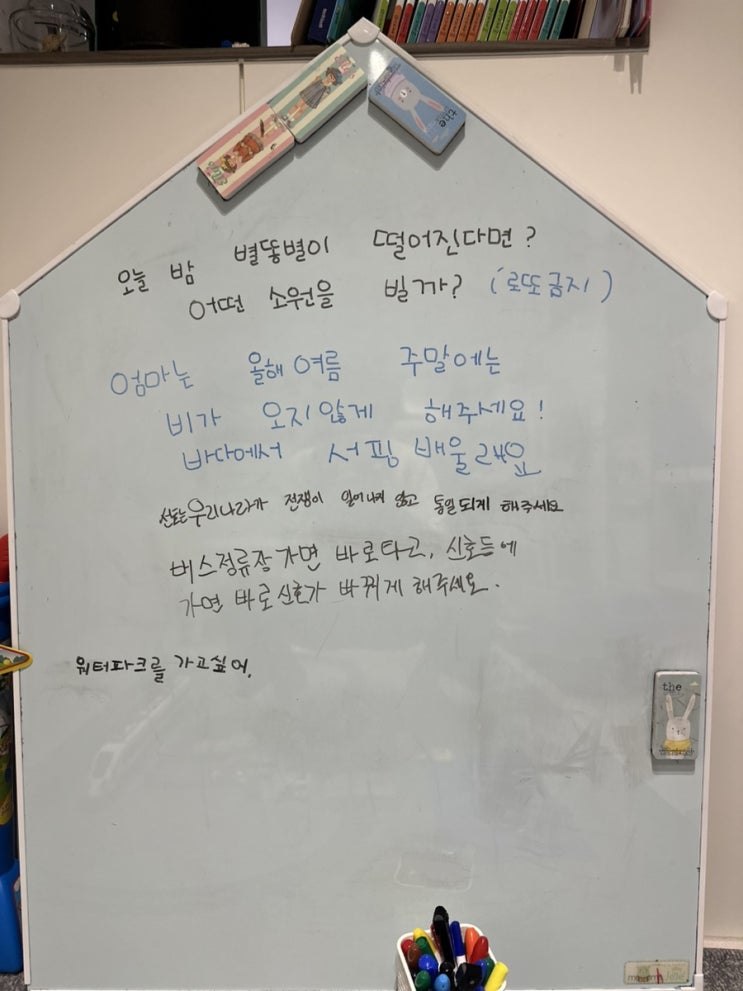 the
오늘 밤 별똥별이 떨어진다면?
어떤 소원을 빌까? (로또금지)
엄마는 올해 여름 주말에는
비가 오지 않게 해주세요!
바다에서 서핑 배울래요
우리나라가 전쟁이 일어나지 않고 통일되게 해주세요
버스정류장 가면 바로타고, 신호등에
가면 바로 신호가 바뀌게 해주세요.
워터파크를 가고싶어.
the